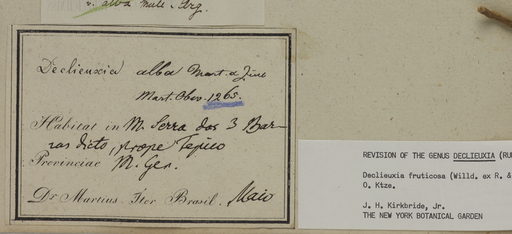 v. alba Müll. Arg.
Declieuxia alba Mart. & Zucc
Mart. Obs. 1265.
Habitat in M. Serra dos 3 Bar-
ras dicto, prope Tejuco
Provinciae M. Ger.
Dr Martius Iter Brasil. Maio
REVISION OF THE GENUS DECLIEUXIA (RU
Declieuxia fruticosa (Willd. ex R. &
O. Ktze.
J. H. Kirkbride, Jr.
THE NEW YORK BOTANICAL GARDEN